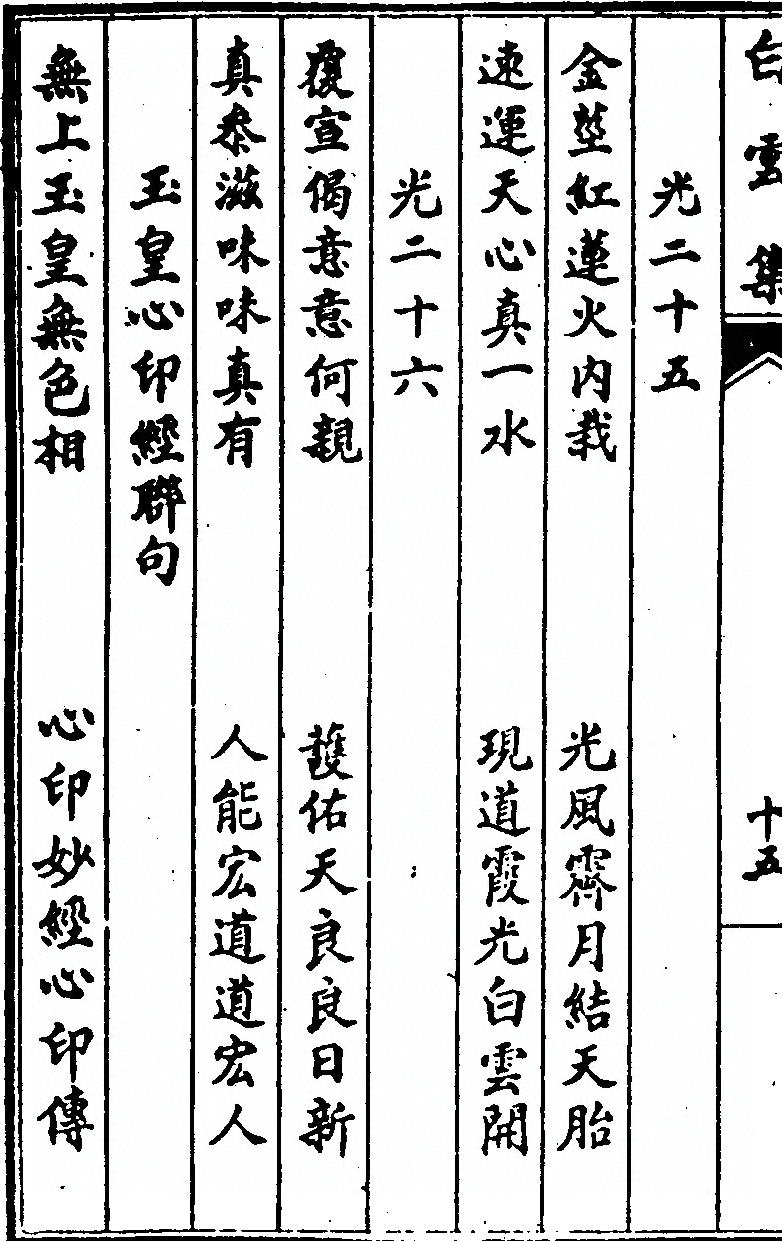 白雲集
十五
光二十五
金莖紅蓮火內栽 光風霽月結天胎
速運天心真一水 現道霞光白雲開
光二十六
覆宣偈意意何親 護佑天良良日新
真參滋味味真有 人能宏道道宏人
玉皇心印經聯句
無上玉皇無色相 心印妙經心印傳